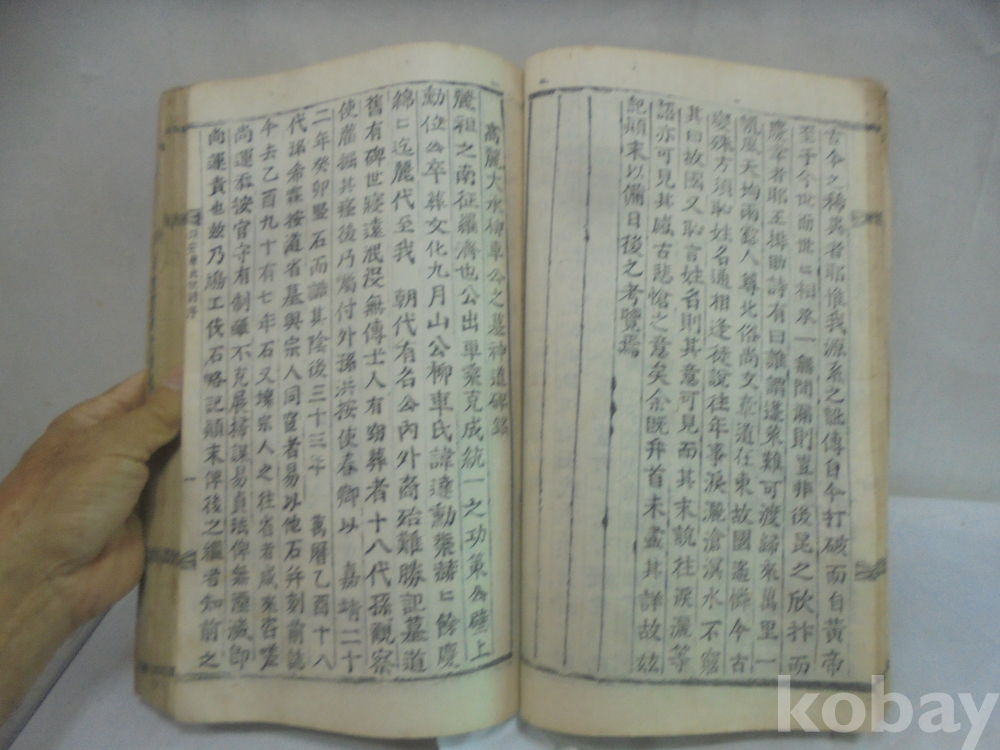 古今之稀異者耶惟我源系之訛傳自今打破而自黃帝
至于今世而世〻相承一無間漏則豈非後昆之欣抃而
慶幸者耶王揖助詩有曰誰謂蓬萊難可渡歸來萬里一
帆風天均雨露人尊北俗尚文章道在東故國盖憐今古
變殊方須恥姓名通相逢徒說往年事淚灑滄溟水不窮
其曰故國又恥言姓名則其意可見而其末說往淚灑等
語亦可見其感古悲愴之意矣余旣弁首未盡其詳故玆
記顚末以備日後之考覽焉
高麗大丞柳車公之墓神道碑銘
麗祖之南征羅濟也公出車乘克成統一之功策公壁上
勳位公卒葬文化九月山公柳車氏諱達勳業赫〻餘慶
綿〻迄麗代至我 朝代有名公內外裔殆難勝記墓道
舊有碑世寢遠泯沒無傳士人有竊葬者十八代孫觀察
使灌掘其殯後乃屬付外孫洪按使春卿以 嘉靖二十
二年癸卯竪石而識其陰後三十三年 萬曆乙酉十八
代孫希霖按道省墓與宗人同窆者易以他石幷刻前誌
今去乙酉九十有七年石又壞宗人之往省者咸來咨嗟
尚運忝按官守有制雖不克展掃謀易貞珉俾無湮滅卽
尚運責也玆乃鳩工伐石略記顚末俾後之繼者知前之